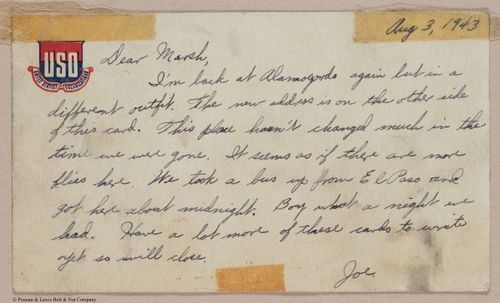 Aug 3, 1943
USO
UNITED SERVICE ORGANIZATIONS
Dear Marsh,
I'm back at Alamogordo again but in a
different outfit. The new address is on the other side
of this card. This place hasn't changed much in the
time we were gone. It seems as if there are more
flies here. We took a bus up from El Paso and
got here about midnight. Boy what a night we
had. Have a lot more of these cards to write
yet so will close.
Joe
© Pioneer & Lewis Bolt & Nut Company